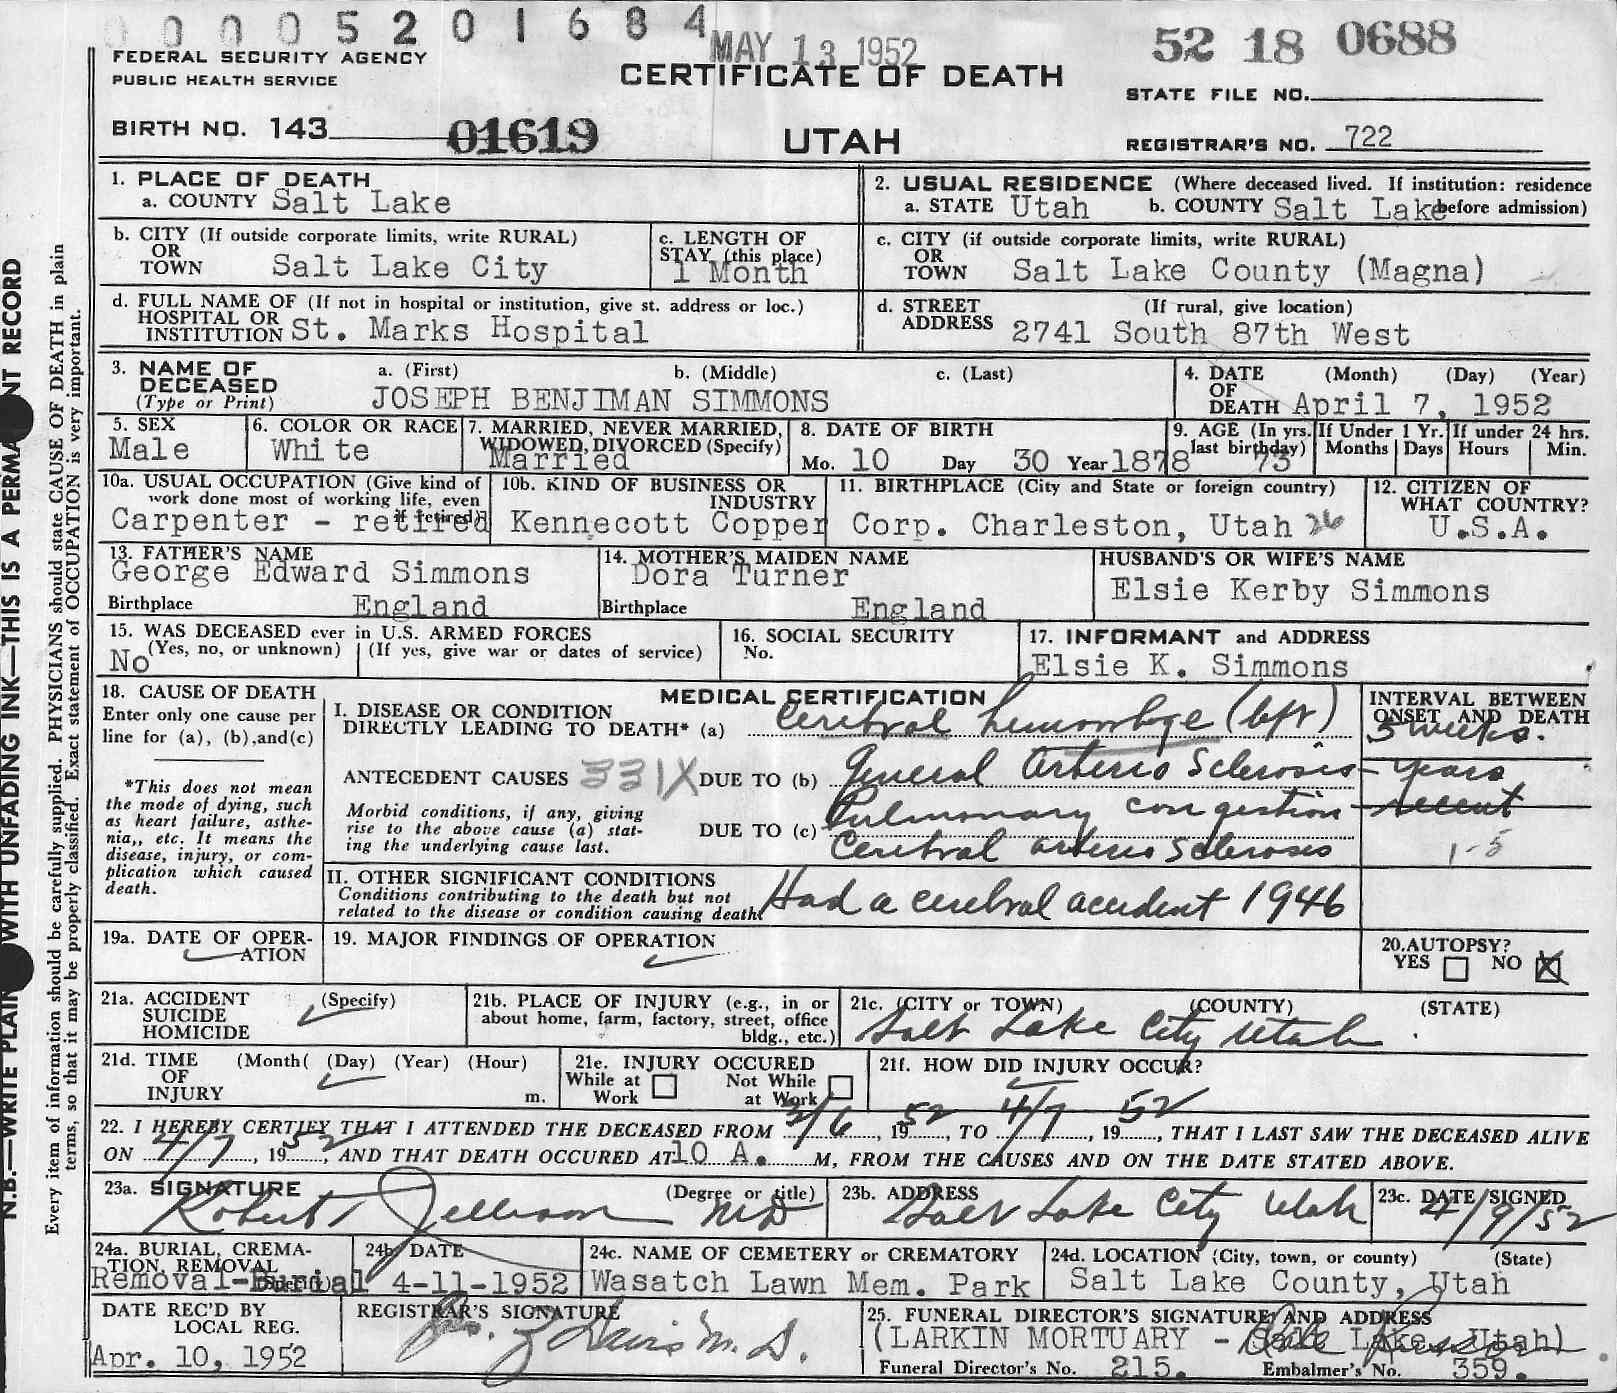 0000520 1684
MAY 13 1952
52 18 0688
FEDERAL SECURITY AGENCY
PUBLIC HEALTH SERVICE
CERTIFICATE OF DEATH
STATE FILE NO.
BIRTH NO. 143 01619
UTAH
REGISTRAR'S NO. 722
1. PLACE OF DEATH
a. COUNTY Salt Lake
2. USUAL RESIDENCE (Where deceased lived. If institution: residence before admission)
a. STATE Utah b. COUNTY Salt Lake
b. CITY (If outside corporate limits, write RURAL)
OR
TOWN Salt Lake City
c. LENGTH OF
STAY (this place)
1 Month
c. CITY (if outside corporate limits, write RURAL)
OR
TOWN Salt Lake County (Magna)
d. FULL NAME OF (If not in hospital or institution, give st. address or loc.)
HOSPITAL OR
INSTITUTION St. Marks Hospital
d. STREET (If rural, give location)
ADDRESS 2741 South 87th West
3. NAME OF
DECEASED
(Type or Print)
a. (First) b. (Middle) c. (Last)
JOSEPH BENJIMAN SIMMONS
4. DATE (Month) (Day) (Year)
OF
DEATH April 7, 1952
5. SEX
Male
6. COLOR OR RACE
White
7. MARRIED, NEVER MARRIED,
WIDOWED, DIVORCED (Specify)
Married
8. DATE OF BIRTH
Mo. 10 Day 30 Year 1878
9. AGE (In yrs.
last birthday)
73
If Under 1 Yr.
Months Days
If under 24 hrs.
Hours Min.
10a. USUAL OCCUPATION (Give kind of
work done most of working life, even
if retired)
Carpenter - retired
10b. KIND OF BUSINESS OR
INDUSTRY
Kennecott Copper Corp.
11. BIRTHPLACE (City and State or foreign country)
Charleston, Utah 26
12. CITIZEN OF
WHAT COUNTRY?
U.S.A.
13. FATHER'S NAME
George Edward Simmons
Birthplace England
14. MOTHER'S MAIDEN NAME
Dora Turner
Birthplace England
HUSBAND'S OR WIFE'S NAME
Elsie Kerby Simmons
15. WAS DECEASED ever in U.S. ARMED FORCES
(Yes, no, or unknown) (If yes, give war or dates of service)
No
16. SOCIAL SECURITY
No.
17. INFORMANT and ADDRESS
Elsie K. Simmons
18. CAUSE OF DEATH
Enter only one cause per
line for (a), (b), and (c)
*This does not mean
the mode of dying, such
as heart failure, asthe-
nia,, etc. It means the
disease, injury, or com-
plication which caused
death.
MEDICAL CERTIFICATION
I. DISEASE OR CONDITION
DIRECTLY LEADING TO DEATH* (a) Cerebral hemorrhage (left)
INTERVAL BETWEEN
ONSET AND DEATH
5 weeks.
ANTECEDENT CAUSES 331X DUE TO (b) General Arterio Sclerosis - years
Morbid conditions, if any, giving
rise to the above cause (a) stat-
ing the underlying cause last.
DUE TO (c) Pulmonary congestion recent
Cerebral Arterio Sclerosis 1-5
II. OTHER SIGNIFICANT CONDITIONS
Conditions contributing to the death but not
related to the disease or condition causing death.
Had a cerebral accident 1946
19a. DATE OF OPER-
ATION
19. MAJOR FINDINGS OF OPERATION
20. AUTOPSY?
YES NO X
21a. ACCIDENT (Specify)
SUICIDE
HOMICIDE
21b. PLACE OF INJURY (e.g., in or
about home, farm, factory, street, office
bldg., etc.)
21c. (CITY or TOWN) (COUNTY) (STATE)
Salt Lake City Utah
21d. TIME (Month( (Day) (Year) (Hour)
OF
INJURY m.
21e. INJURY OCCURED
While at Work Not While at Work
21f. HOW DID INJURY OCCUR?
22. I HEREBY CERTIFY THAT I ATTENDED THE DECEASED FROM 3/6, 1952, TO 4/7, 1952, THAT I LAST SAW THE DECEASED ALIVE
ON 4/7, 1952, AND THAT DEATH OCCURED AT 10 A. M, FROM THE CAUSES AND ON THE DATE STATED ABOVE.
23a. SIGNATURE (Degree or title)
Robert Jellison MD
23b. ADDRESS
Salt Lake City Utah
23c. DATE SIGNED
4/9/52
24a. BURIAL, CREMA-
TION, REMOVAL
(Specify)
Removal-Burial
24b. DATE
4-11-1952
24c. NAME OF CEMETERY or CREMATORY
Wasatch Lawn Mem. Park
24d. LOCATION (City, town, or county) (State)
Salt Lake County, Utah
DATE REC'D BY
LOCAL REG.
Apr. 10, 1952
REGISTRAR'S SIGNATURE
25. FUNERAL DIRECTOR'S SIGNATURE AND ADDRESS
(LARKIN MORTUARY - Salt Lake, Utah)
Funeral Director's No. 215. Embalmer's No. 359.
N.B.—WRITE PLAINLY WITH UNFADING INK—THIS IS A PERMANENT RECORD
Every item of information should be carefully supplied. PHYSICIANS should state CAUSE OF DEATH in plain
terms, so that it may be properly classified. Exact statement of OCCUPATION is very important.